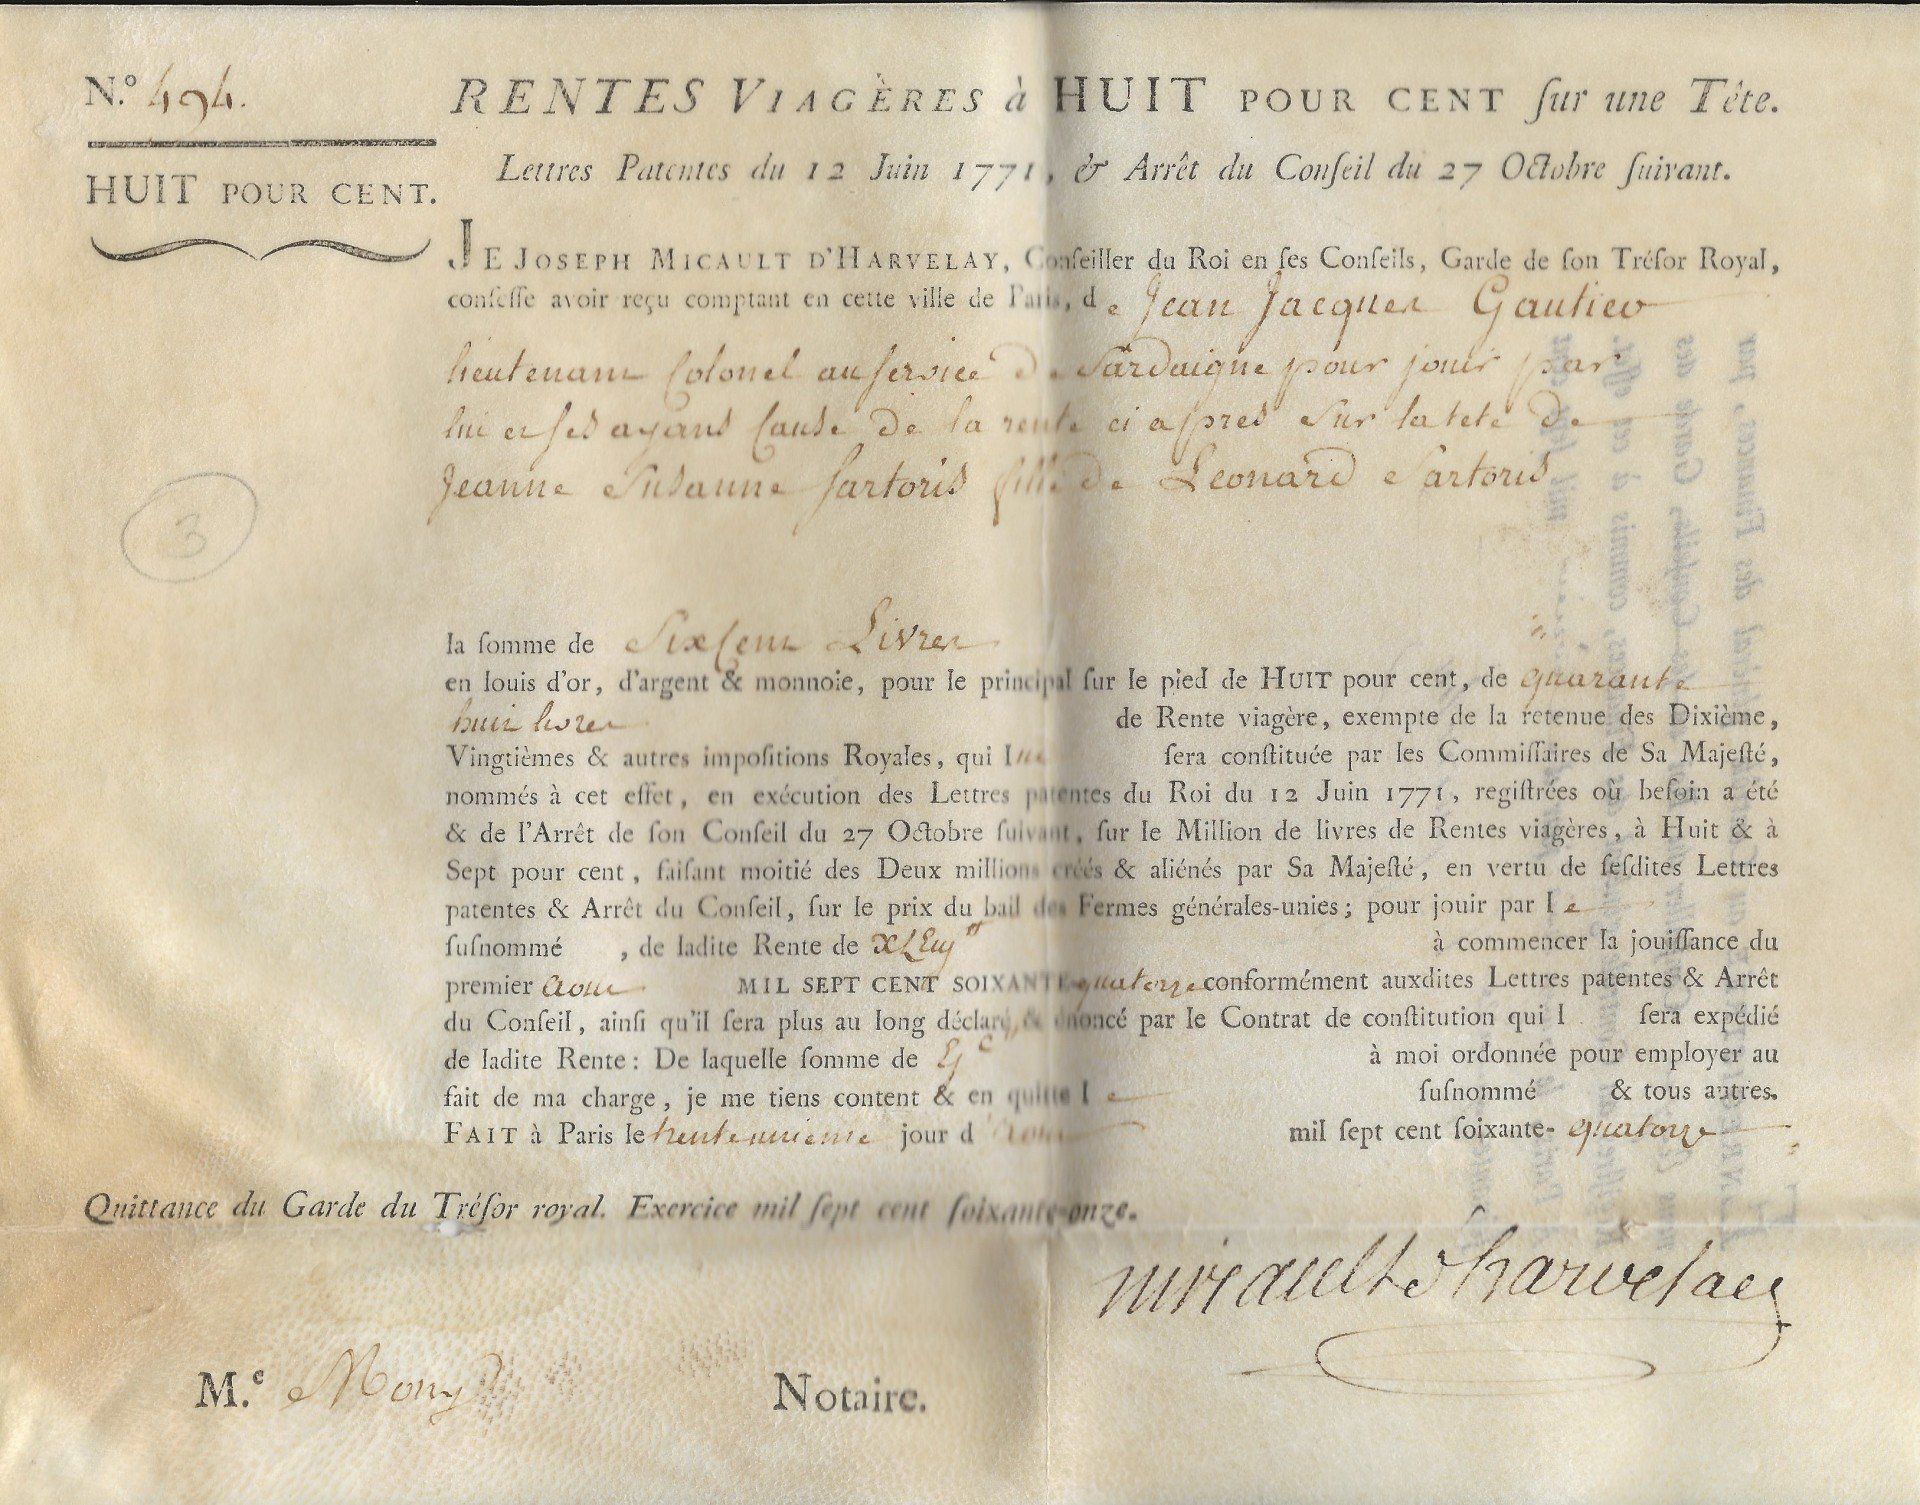 N.º 494.
RENTES VIAGÈRES à HUIT POUR CENT ſur une Tête.
HUIT POUR CENT.
Lettres Patentes du 12 Juin 1771, & Arrêt du Conſeil du 27 Octobre ſuivant.
JE JOSEPH MICAULT D'HARVELAY, Conſeiller du Roi en ſes Conſeils, Garde de ſon Tréſor Royal,
confeſſe avoir reçu comptant en cette ville de Paris, de Jean Jacques Gautier
lieutenant Colonel au ſervice de Sardaigne pour jouir par
lui et ſes ayans Cause de la rente ci apres sur la tete de
Jeanne Susanne Sartoris fille de Leonard Sartoris
3
la ſomme de Six Cent Livres
en louis d'or, d'argent & monnoie, pour le principal ſur le pied de HUIT pour cent, de quarante
huit livres de Rente viagère, exempte de la retenue des Dixième,
Vingtièmes & autres impoſitions Royales, qui l ſera conſtituée par les Commiſſaires de Sa Majeſté,
nommés à cet effet, en exécution des Lettres patentes du Roi du 12 Juin 1771, regiſtrées où beſoin a été
& de l'Arrêt de ſon Conſeil du 27 Octobre ſuivant, ſur le Million de livres de Rentes viagères, à Huit & à
Sept pour cent, faiſant moitié des Deux millions créés & aliénés par Sa Majeſté, en vertu de ſeſdites Lettres
patentes & Arrêt du Conſeil, ſur le prix du bail des Fermes générales-unies; pour jouir par le
ſuſnommé , de ladite Rente de à commencer la jouiſſance du
premier Aout MIL SEPT CENT SOIXANTE-quatorze conformément auxdites Lettres patentes & Arrêt
du Conſeil, ainſi qu'il ſera plus au long déclaré & énoncé par le Contrat de conſtitution qui l ſera expédié
de ladite Rente: De laquelle ſomme de à moi ordonnée pour employer au
fait de ma charge, je me tiens content & en quitte le ſuſnommé & tous autres.
FAIT à Paris le trente unieme jour d'Aout mil ſept cent ſoixante-quatorze
Quittance du Garde du Tréſor royal. Exercice mil ſept cent ſoixante-onze.
micault d'harvelay
M.e Mony Notaire.